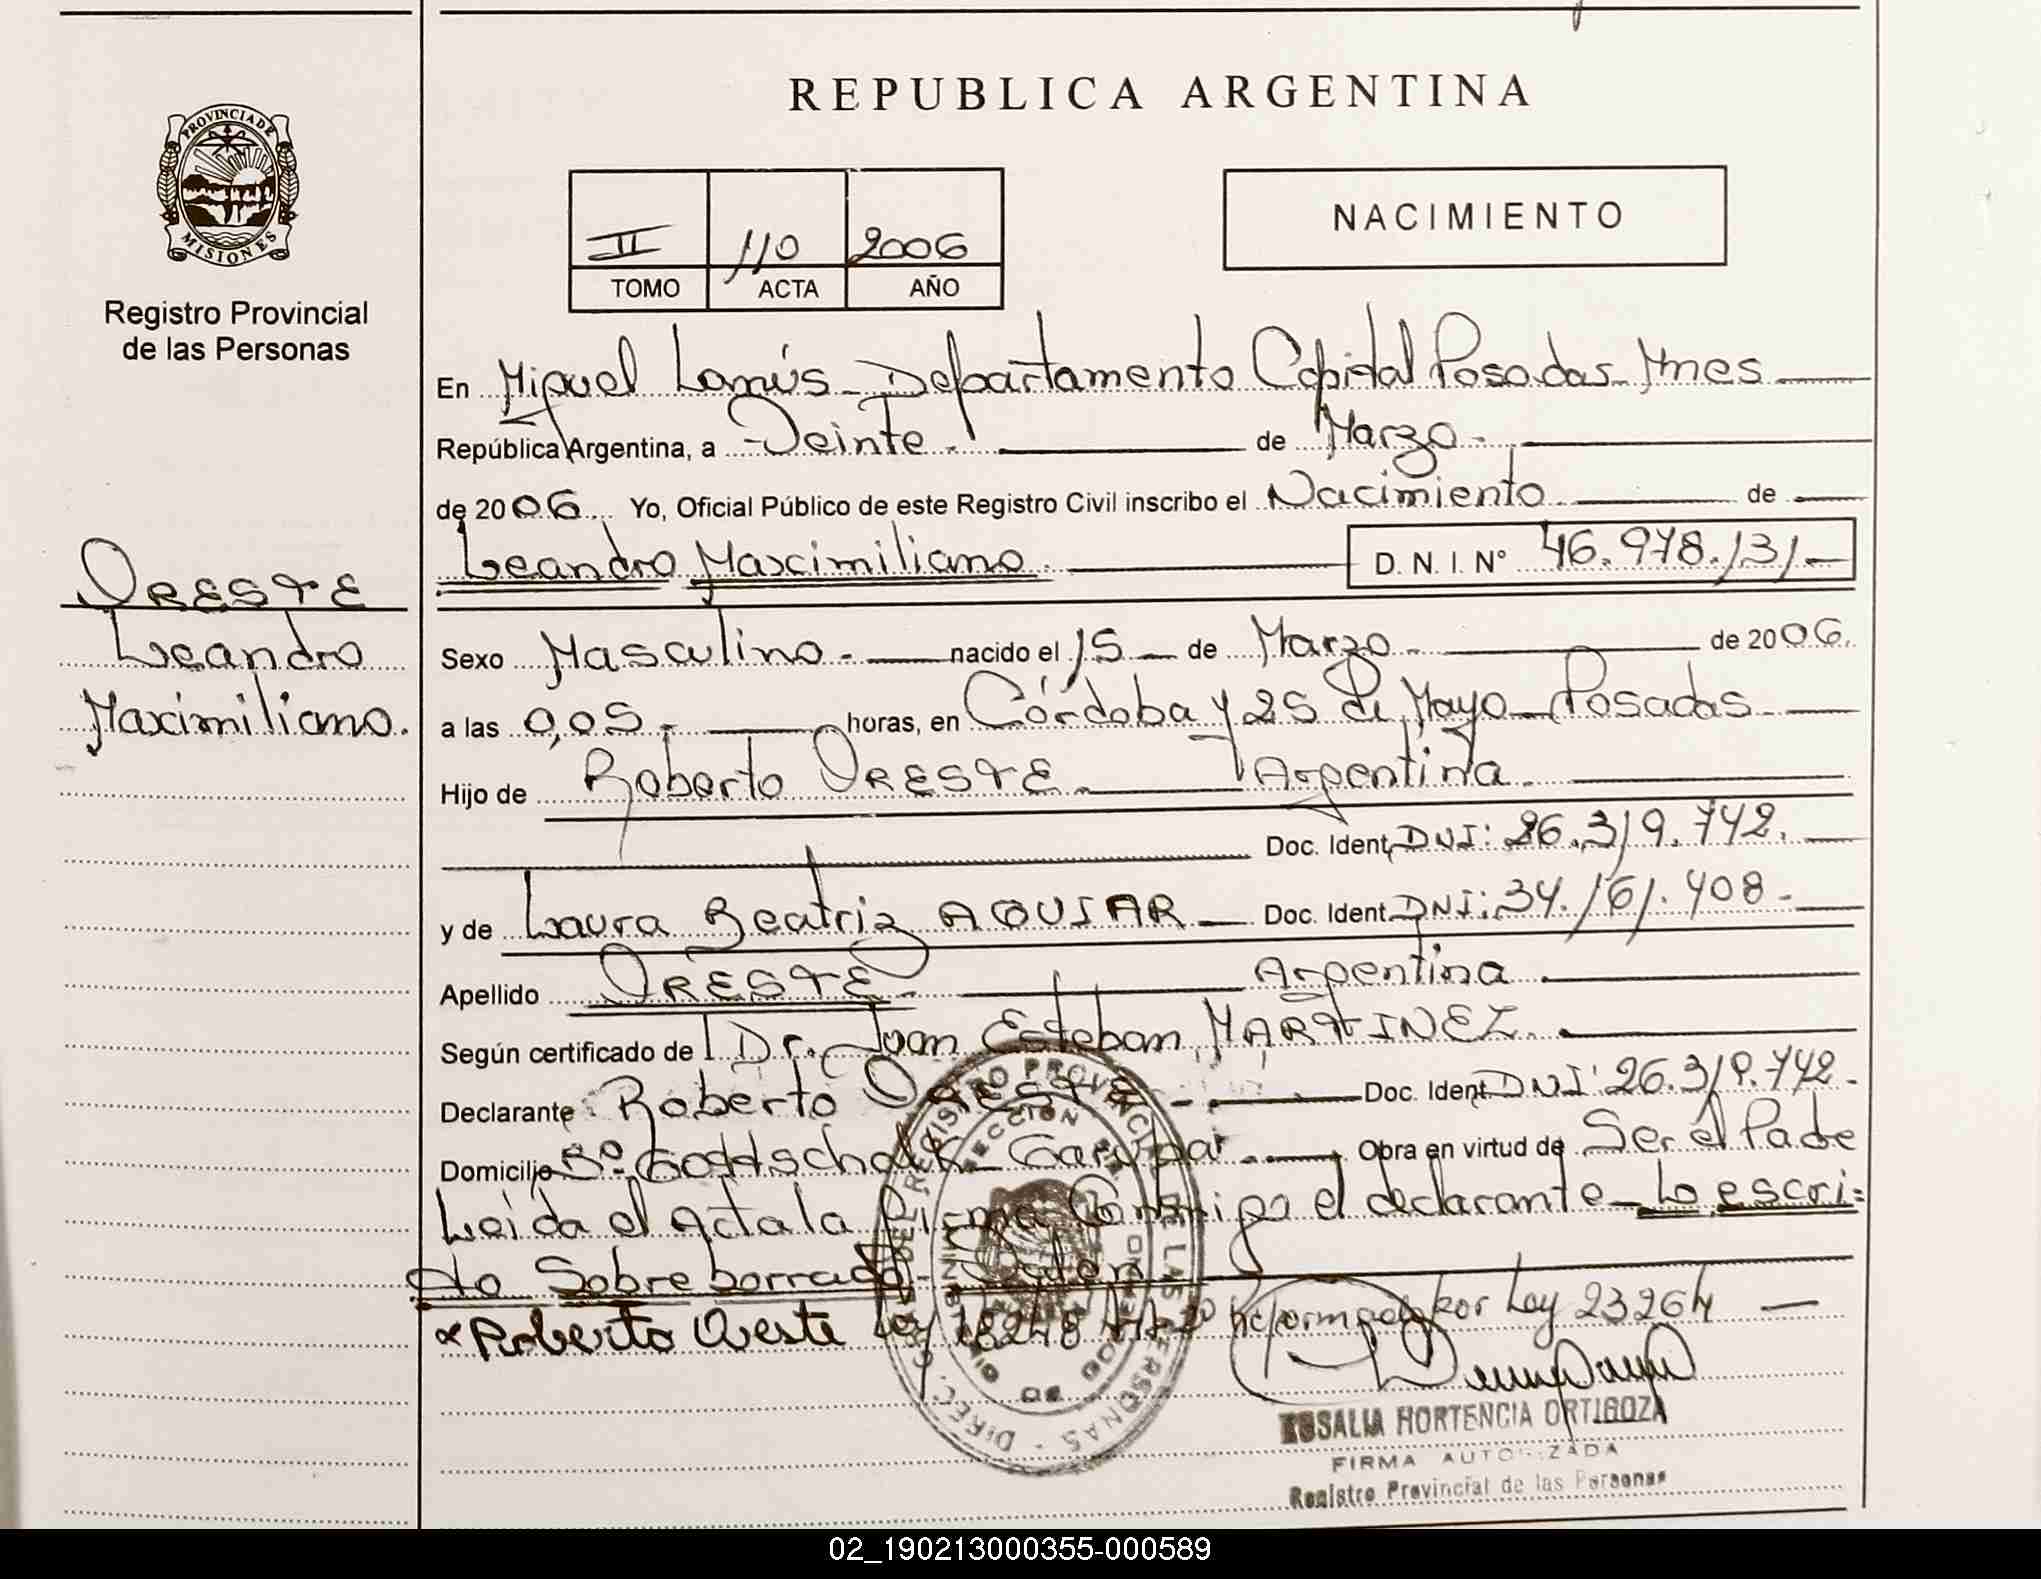 PROVINCIA DE
MISIONES
Registro Provincial
de las Personas
ORESTE
Leandro
Maximiliano.
REPUBLICA ARGENTINA
II 110 2006
TOMO ACTA AÑO
NACIMIENTO
En Miguel Lanús - Departamento Capital Posadas Mnes
República Argentina, a Veinte de Marzo
de 2006 Yo, Oficial Público de este Registro Civil inscribo el Nacimiento de
Leandro Maximiliano D.N.I. Nº 46.978.131
Sexo Masculino nacido el 15 de Marzo de 2006.
a las 0,05 horas, en Córdoba y 25 de Mayo - Posadas
Hijo de Roberto ORESTE Argentina
Doc. Ident. DNI: 26.319.742.
y de Laura Beatriz AQUIAR Doc. Ident. DNI: 34.161.408
Apellido ORESTE Argentina
Según certificado de Dr. Juan Esteban MARTINEZ
Declarante Roberto ORESTE Doc. Ident. DNI 26.319.742
Domicilio Bº Gottschalk - Garupá Obra en virtud de Ser el Padre
Leida el Acta la Firma Conmigo el declarante - Lo escri=
to Sobre borrado
Roberto Oreste Ley 18248 reformado por Ley 23264
ROSALIA HORTENCIA ORTIGOZA
FIRMA AUTORIZADA
Registro Provincial de las Personas
02_190213000355-000589